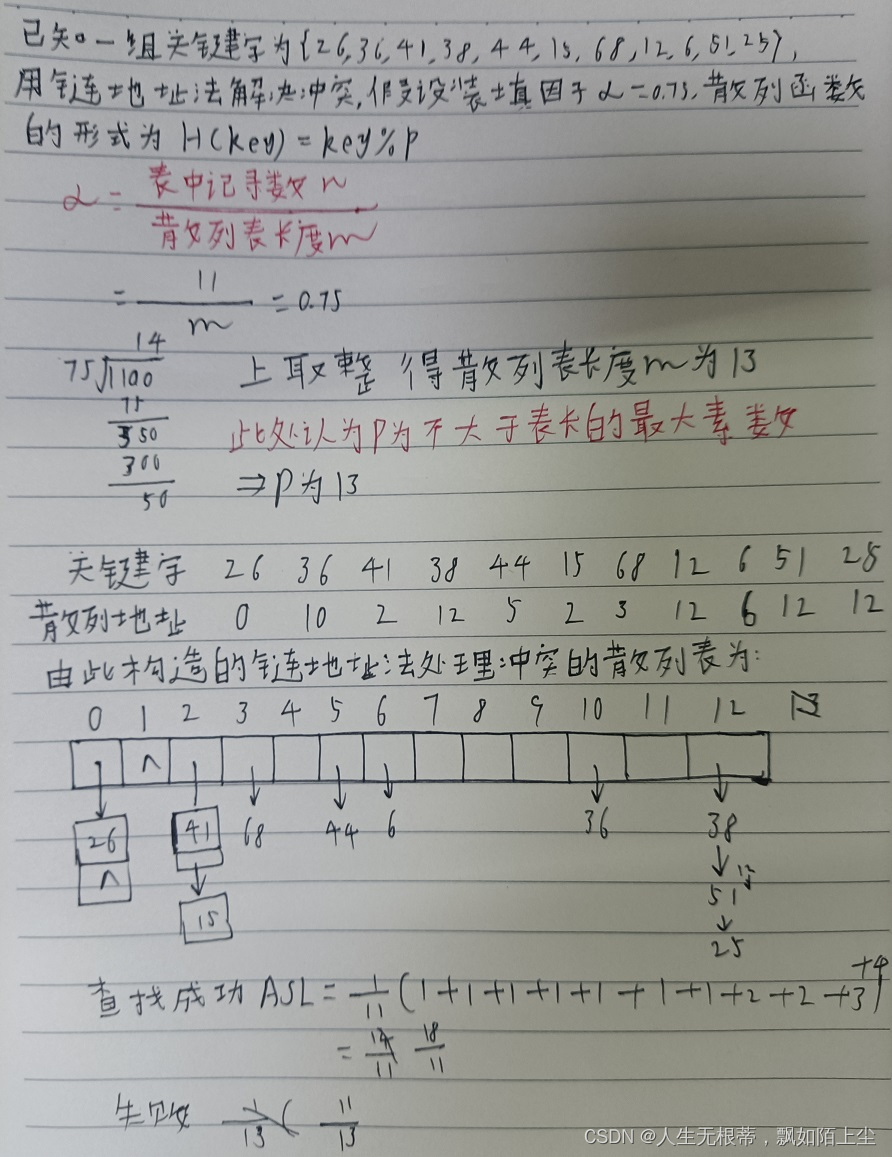 已知一组关键字为{26,36,41,38,44,15,68,12,6,51,25},
用链地址法解决冲突,假设装填因子α=0.75,散列函数
的形式为 H(key)=key%P
α = 表中记录数n
散列表长度m
= 11
m
= 0.75
14
75√1100
75
350
300
50
上取整 得散列表长度m为13
此处认为P为不大于表长的最大素数
⇒P为13
关键字 26 36 41 38 44 15 68 12 6 51 25
散列地址 0 10 2 12 5 2 3 12 6 12 12
由此构造的链地址法处理冲突的散列表为:
0 1 2 3 4 5 6 7 8 9 10 11 12 13
∧
26 41 68 44 6 36 38
∧
12
51
15
25
查找成功 ASL = 1/11 (1+1+1+1+1+1+1+2+2+3+4)
= 14/11 18/11
失败 1/13 ( 11/13
CSDN @人生无根蒂，飘如陌上尘